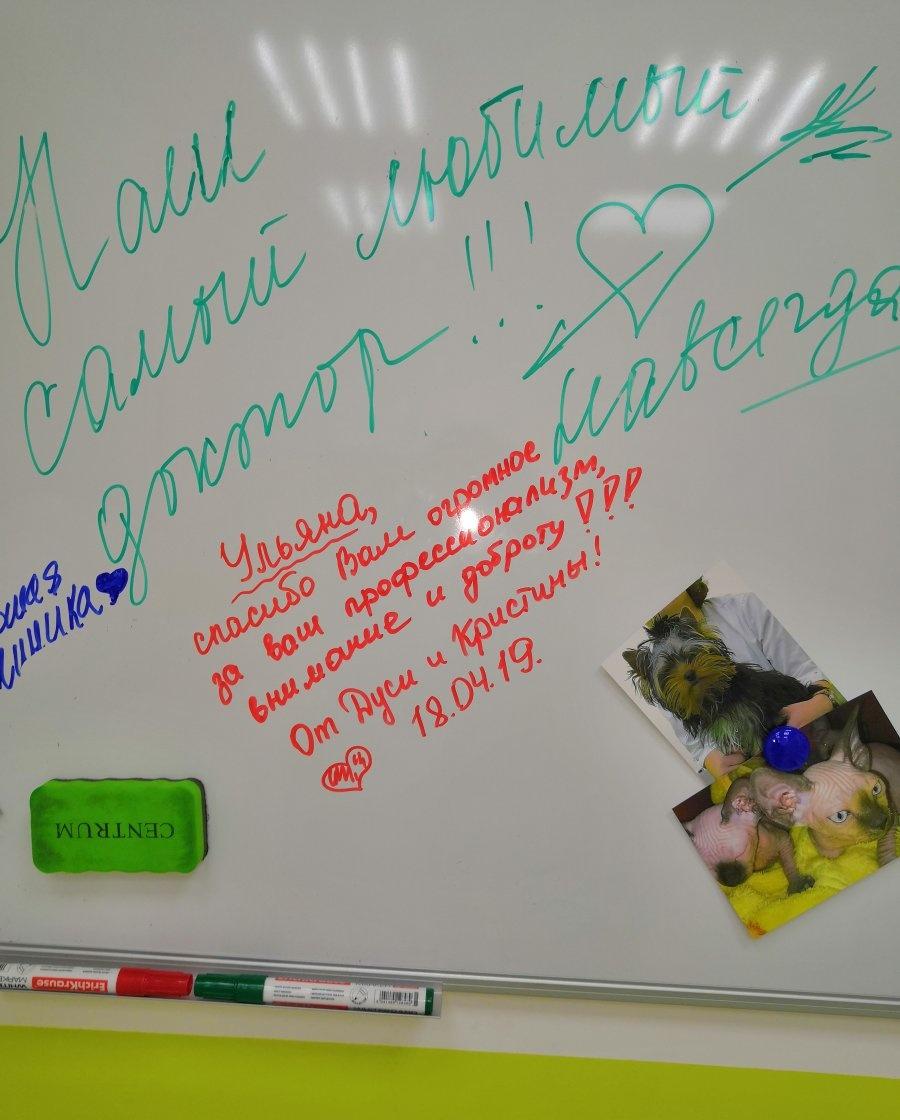 Наш
самый любимый
доктор!!!
Навсегда
Ульяна,
спасибо Вам огромное
за ваш профессионализм,
внимание и доброту!!!
От Дуси и Кристины!
18.04.19.
CENTRUM
ErichKrause